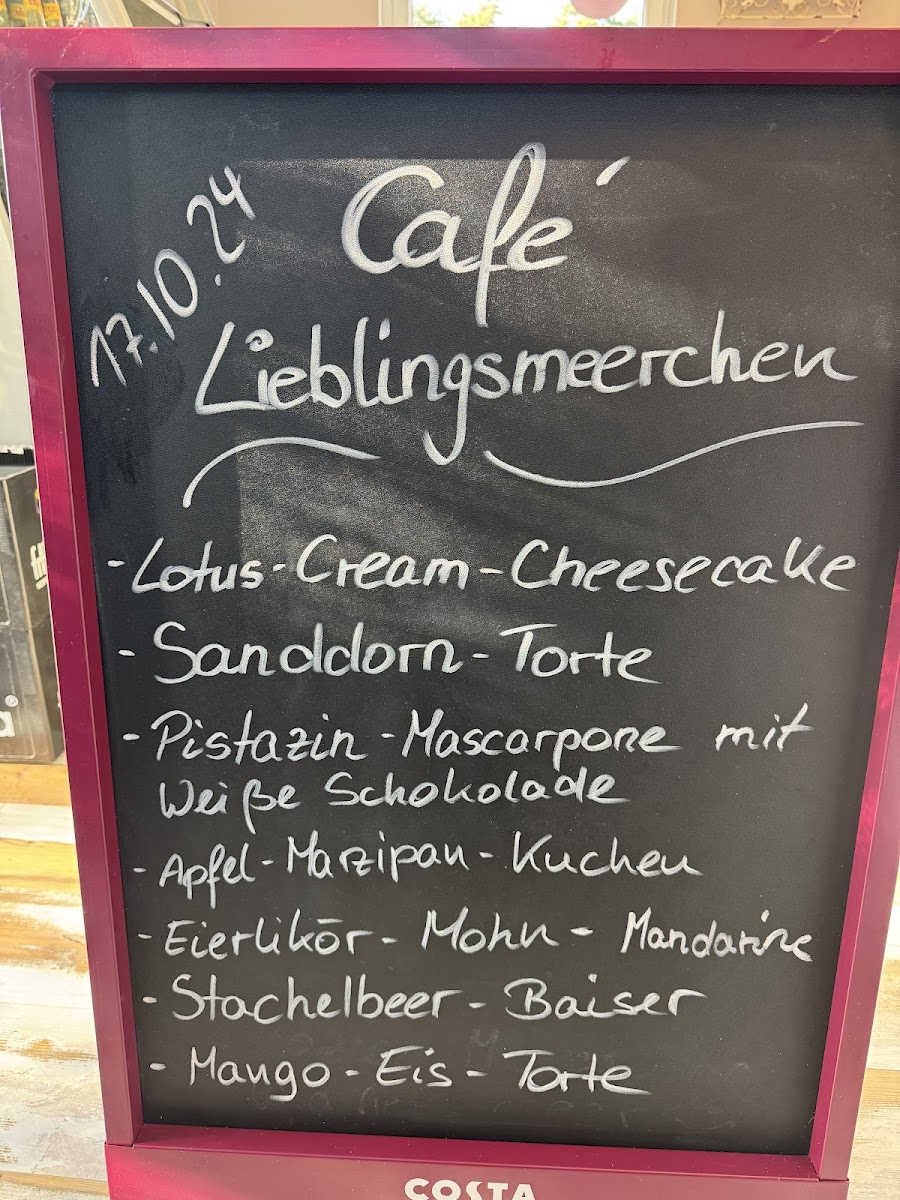 17.10.24
Café
Lieblingsmeerchen
- Lotus - Cream - Cheesecake
- Sanddorn - Torte
- Pistazin - Mascarpone mit
Weiße Schokolade
- Apfel - Marzipan - Kuchen
- Eierlikör - Mohn - Mandarine
- Stachelbeer - Baiser
- Mango - Eis - Torte
COSTA